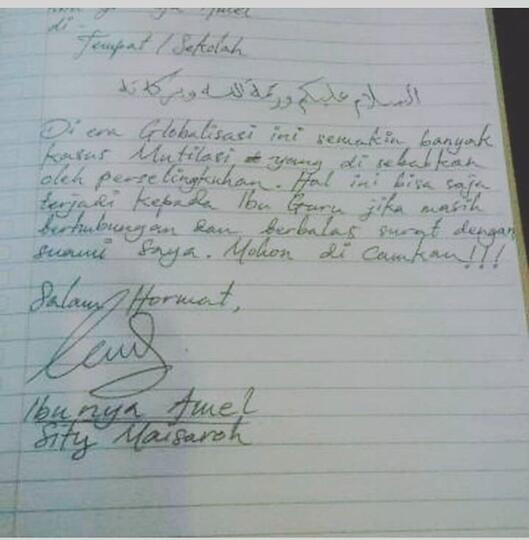 Amel
di -
Tempat / Sekolah
السلام عليكم ورحمة الله وبركاته
Di era Globalisasi ini semakin banyak
kasus Mutilasi yang di sebabkan
oleh perselingkuhan. Hal ini bisa saja
terjadi kepada Ibu Guru jika masih
berhubungan dan berbalas surat dengan
suami saya. Mohon di Camkan!!!
Salam Hormat,
Ibunya Amel
Sity Maisaroh